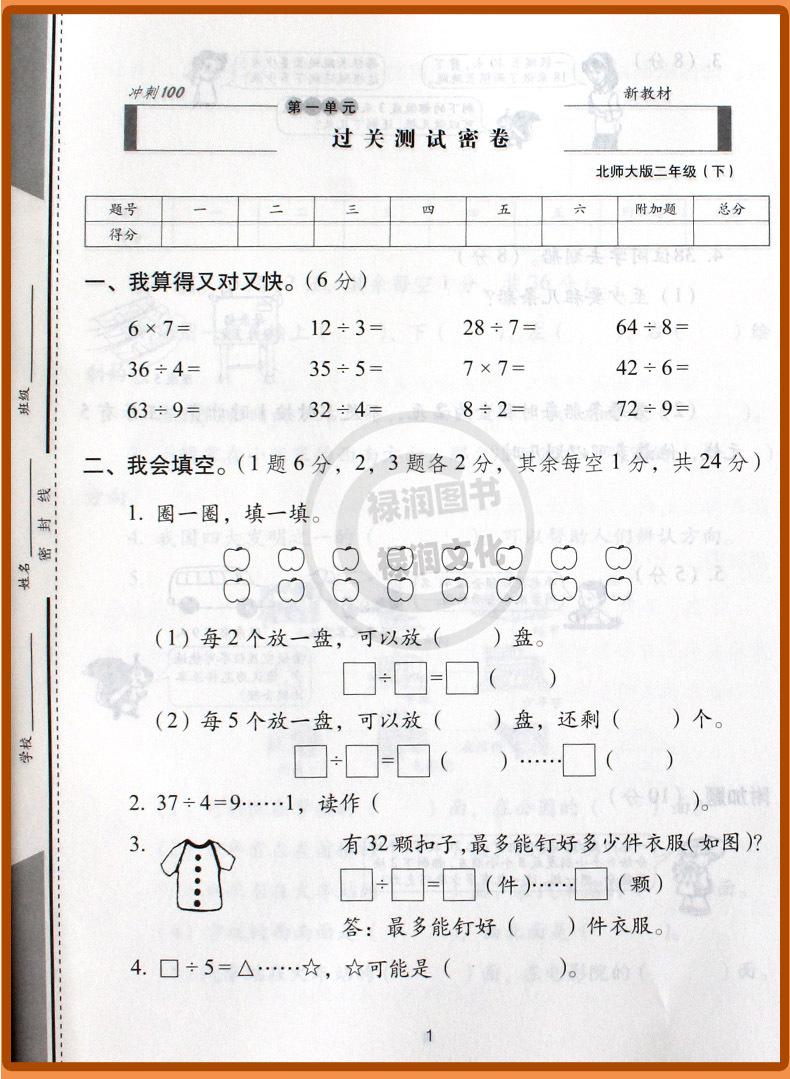 冲刺100
第一单元
新教材
过关测试密卷
北师大版二年级(下)
题号 一 二 三 四 五 六 附加题 总分
得分
一、我算得又对又快。(6分)
6×7= 12÷3= 28÷7= 64÷8=
36÷4= 35÷5= 7×7= 42÷6=
63÷9= 32÷4= 8÷2= 72÷9=
二、我会填空。(1题6分，2，3题各2分，其余每空1分，共24分)
1. 圈一圈，填一填。
(1) 每2个放一盘，可以放( )盘。
□÷□=□( )
(2) 每5个放一盘，可以放( )盘，还剩( )个。
□÷□=□( )……□( )
2. 37÷4=9……1，读作( )。
3. 有32颗扣子,最多能钉好多少件衣服(如图)?
□÷□=□(件)……□(颗)
答：最多能钉好( )件衣服。
4. □÷5=△……☆，☆可能是( )。
1
班级
姓名
学校
密封线
禄润图书
禄润文化